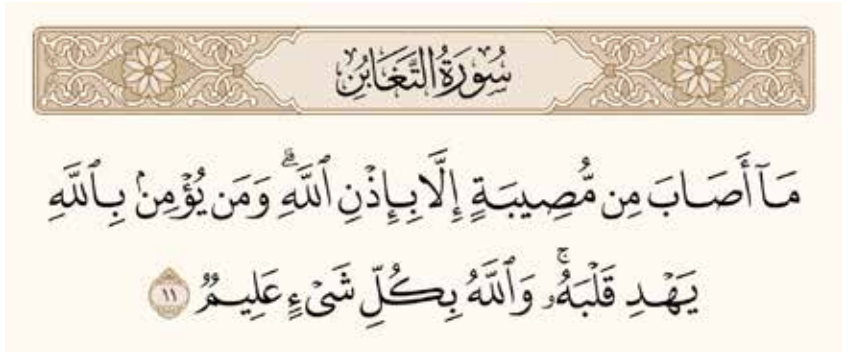 سُورَةُ التَّغَابُنِ
مَآ أَصَابَ مِن مُّصِيبَةٍ إِلَّا بِإِذْنِ ٱللَّهِۗ وَمَن يُؤْمِنۢ بِٱللَّهِ
يَهْدِ قَلْبَهُۥۚ وَٱللَّهُ بِكُلِّ شَىْءٍ عَلِيمٌ ١١